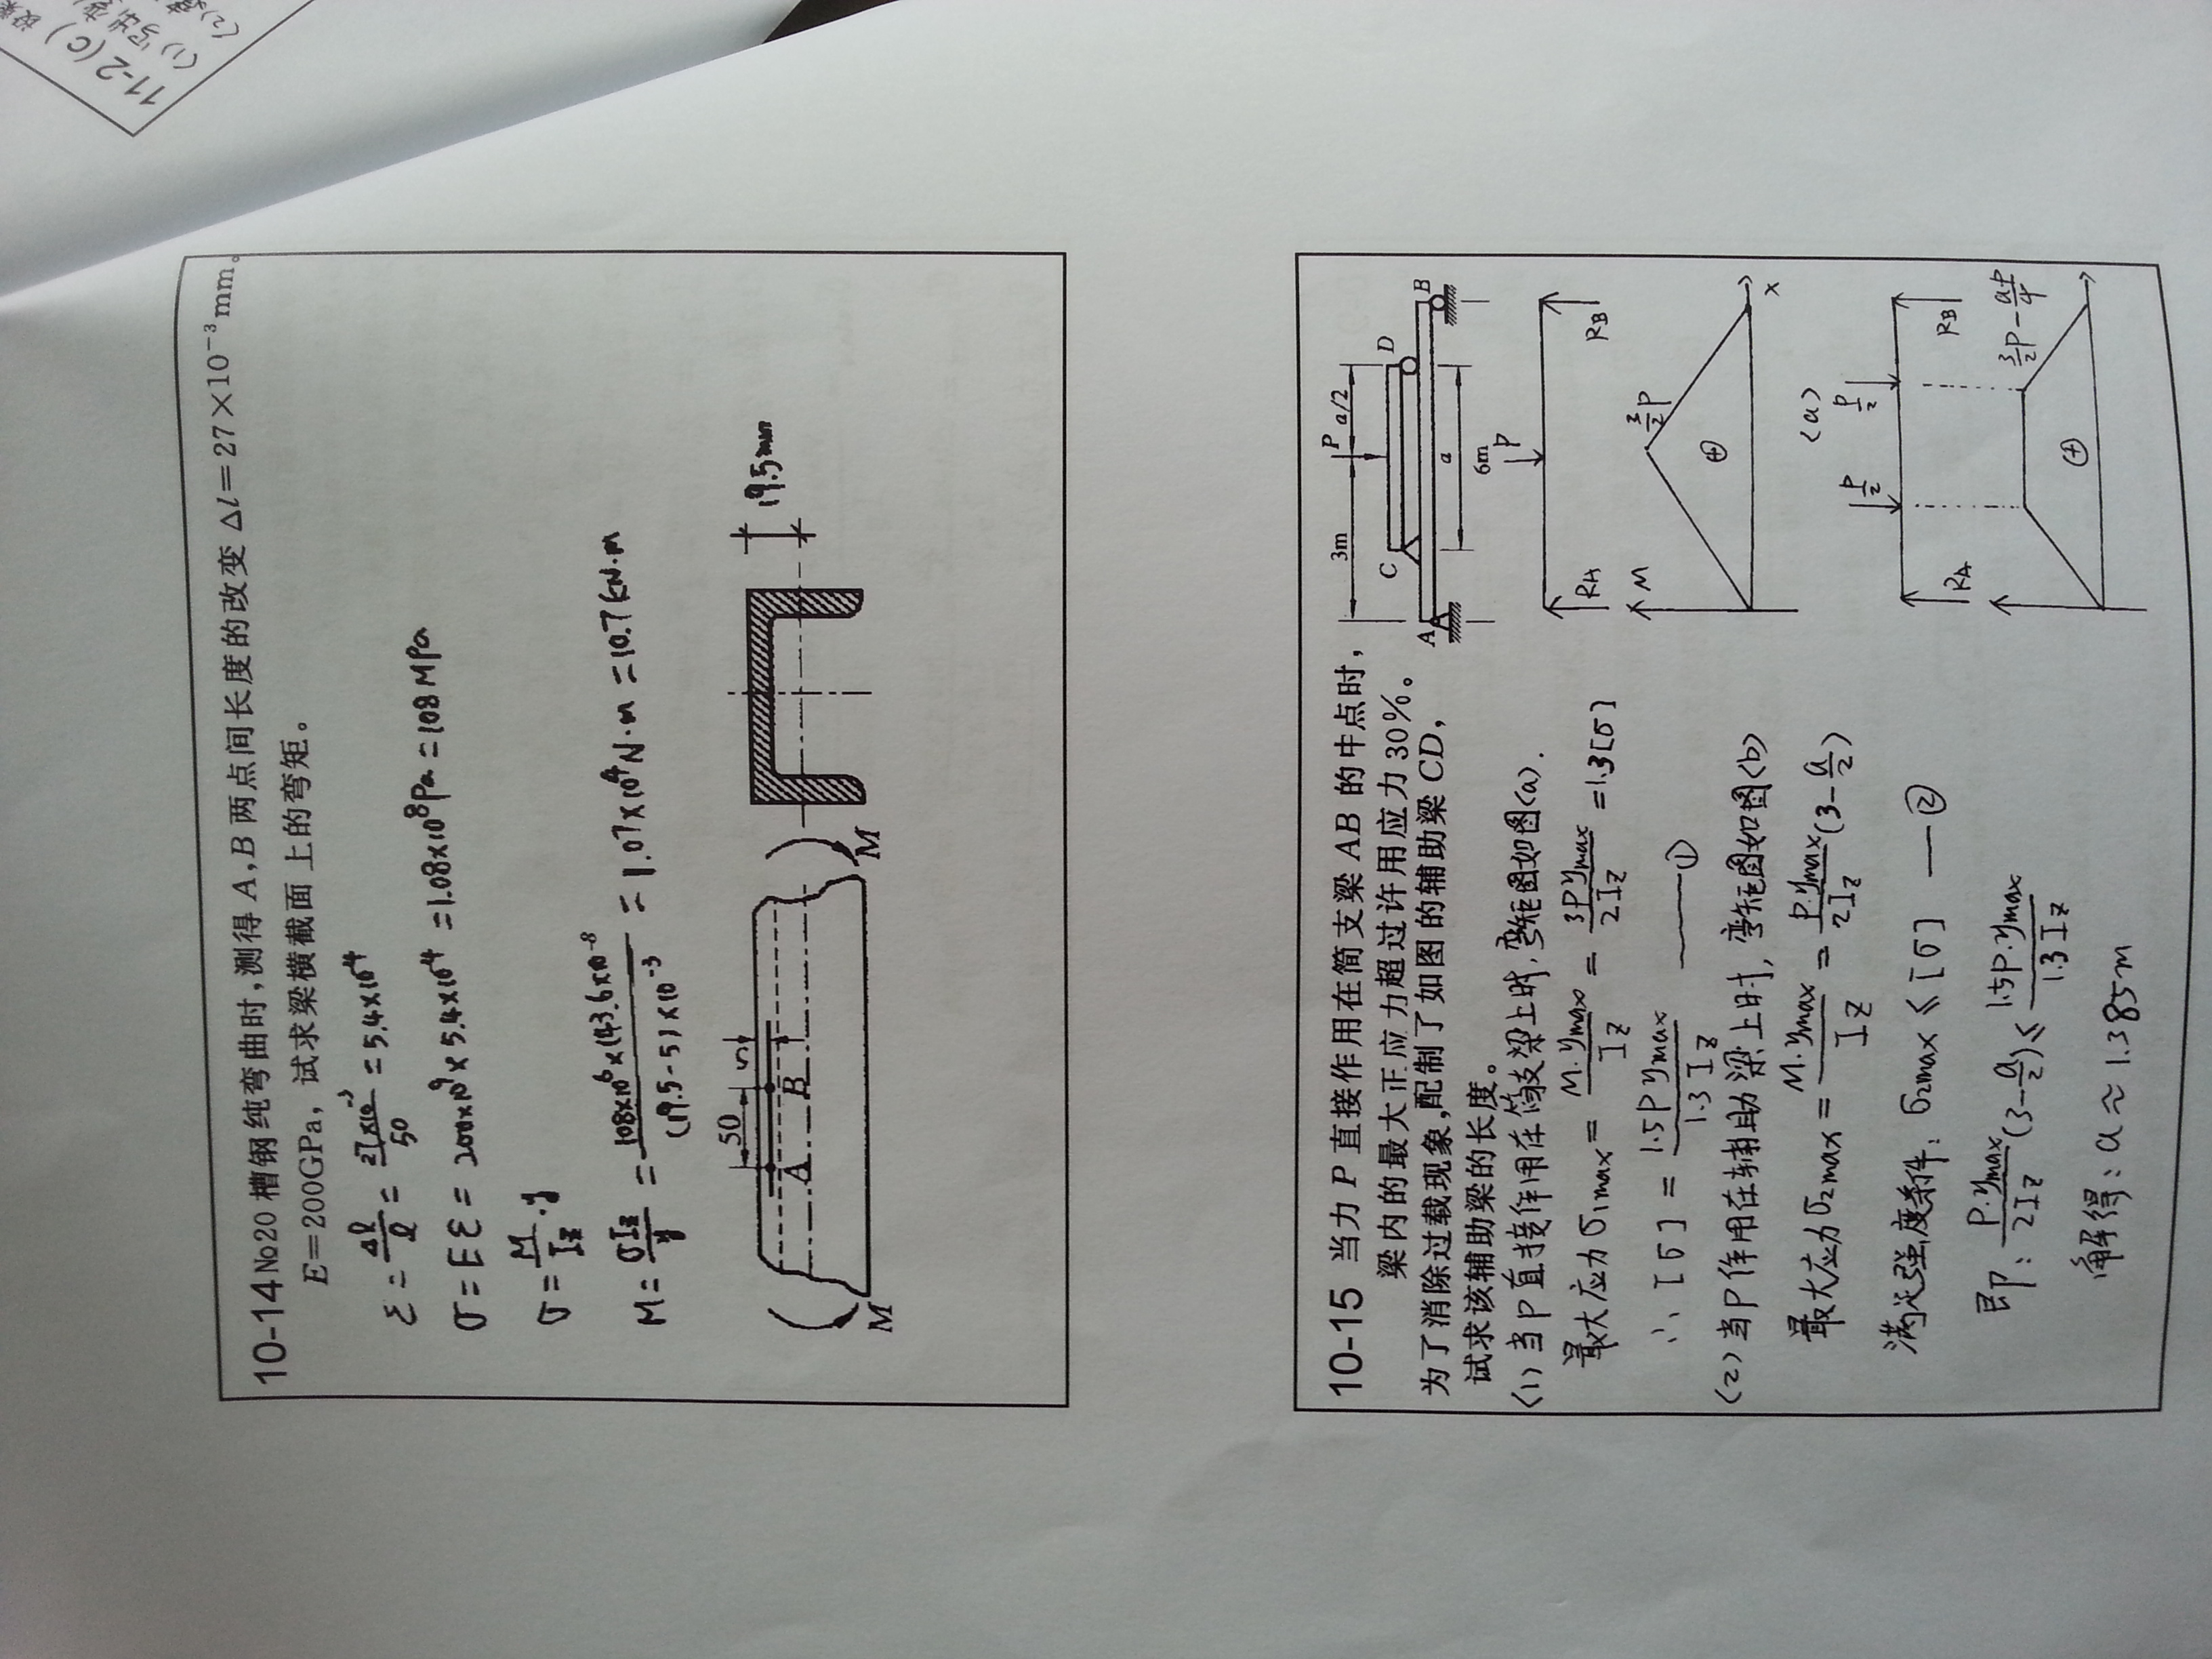 11-2(c)
10-14 №20槽钢纯弯曲时,测得A,B两点间长度的改变 Δl=27×10⁻³mm。
E=200GPa, 试求梁横截面上的弯矩。
ε = Δl/l = 27×10⁻³/50 = 5.4×10⁻⁴
σ = Eε = 200×10⁹×5.4×10⁻⁴ = 1.08×10⁸Pa = 108MPa
σ = M/Iz·y
M = σIz/y = 108×10⁶×143.6×10⁻⁸/(19.5-5)×10⁻³ = 1.07×10⁴N·m = 10.7kN·m
50
5
A
B
M
M
19.5mm
10-15 当力P直接作用在简支梁AB的中点时,
梁内的最大正应力超过许用应力30%。
为了消除过载现象,配制了如图的辅助梁CD,
试求该辅助梁的长度。
(1)当P直接作用在简支梁上时,弯矩图如图<a>.
最大应力σ1max = M·ymax/Iz = 3Pymax/2Iz = 1.3[σ]
∴ [σ] = 1.5Pymax/1.3Iz ——①
(2)当P作用在辅助梁上时,弯矩图如图<b>
最大应力σ2max = M·ymax/Iz = P·ymax/2Iz(3-a/2)
满足强度条件: σ2max ≤ [σ] ——②
即: P·ymax/2Iz(3-a/2) ≤ 1.5P·ymax/1.3Iz
解得: a ≈ 1.385m
3m
P
a/2
C
D
A
B
a
6m
P
RA
RB
M
3/2P
⊕
x
<a>
P/2
P/2
RA
RB
3/2P-aP/4
⊕